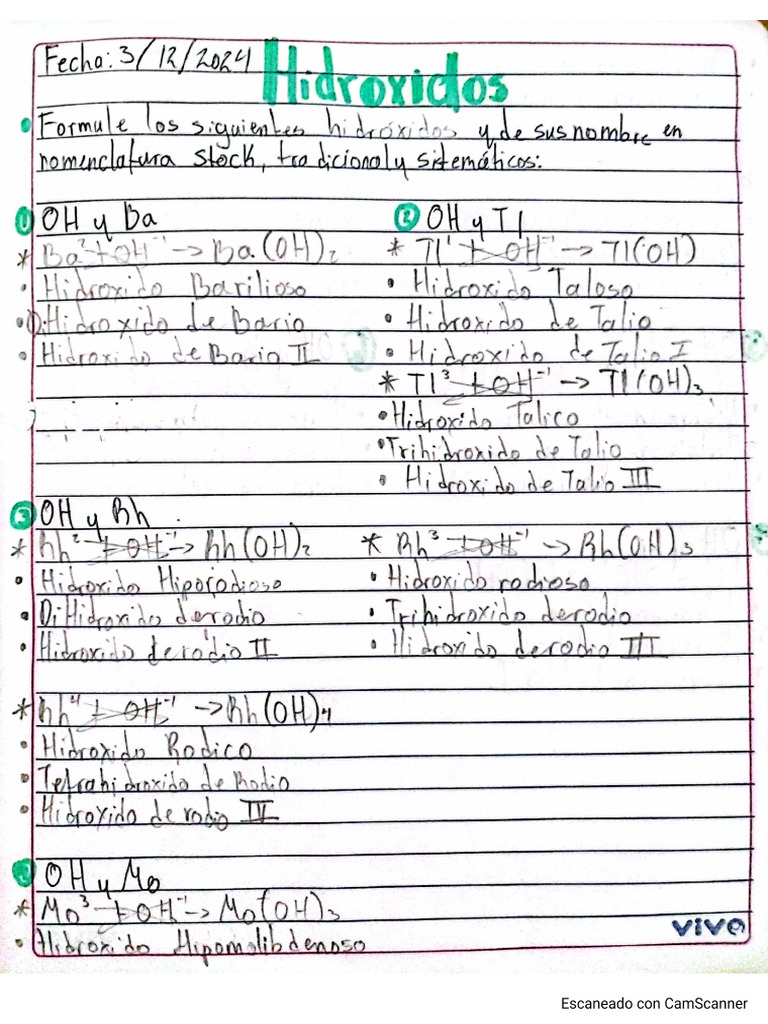 Fecha: 3/12/2024
Hidroxidos
• Formule los siguientes hidróxidos y de sus nombre en
nomenclatura stock, tradicional y sitemáticos:
① OH y Ba
* Ba² + OH⁻¹ -> Ba(OH)₂
• Hidroxido Barilioso
• Di Hidroxido de Bario
• Hidroxido de Bario II
② OH y Tl
* Tl¹ + OH⁻¹ -> Tl(OH)
• Hidroxido Taloso
• Hidroxido de Talio
• Hidroxido de Talio I
* Tl³ + OH⁻¹ -> Tl(OH)₃
• Hidroxido Talico
• Trihidroxido de Talio
• Hidroxido de Talio III
③ OH y Rh
* Rh² + OH⁻¹ -> Rh(OH)₂
• Hidroxido Hiporodioso
• DiHidroxido de rodio
• Hidroxido de rodio II
* Rh³ + OH⁻¹ -> Rh(OH)₃
• Hidroxido rodioso
• Trihidroxido de rodio
• Hidroxido de rodio III
* Rh⁴ + OH⁻¹ -> Rh(OH)₄
• Hidroxido Rodico
• Tetrahidroxido de Rodio
• Hidroxido de rodio IV
OH y Mo
* Mo³ + OH⁻¹ -> Mo(OH)₃
• Hidroxido Hipomolibdenoso
vivo
Escaneado con CamScanner